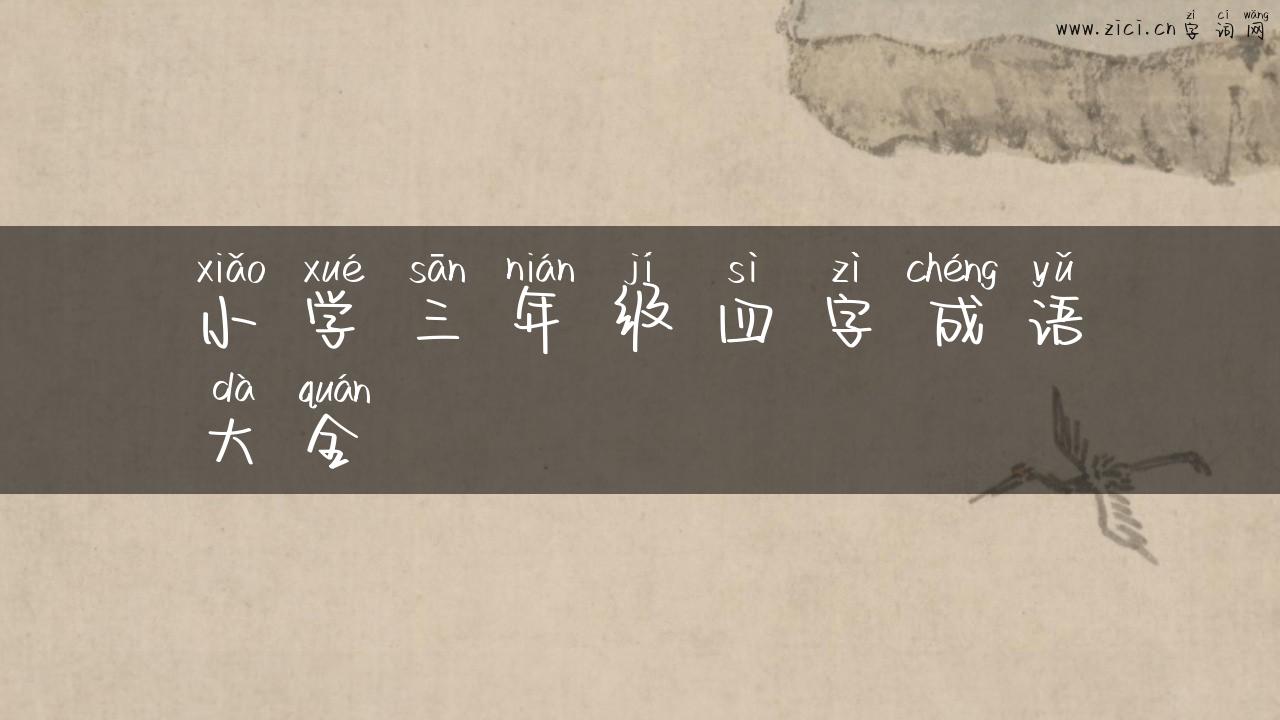 zì cí wǎng
www.zici.cn 字词网
xiǎo xué sān nián jí sì zì chéng yǔ
小学三年级四字成语
dà quán
大全